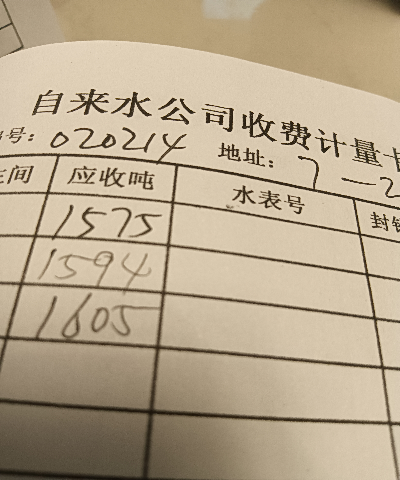 自来水公司收费计量
号: 020214 地址: 7—2
间 应收吨 水表号 封
1575
1594
1605